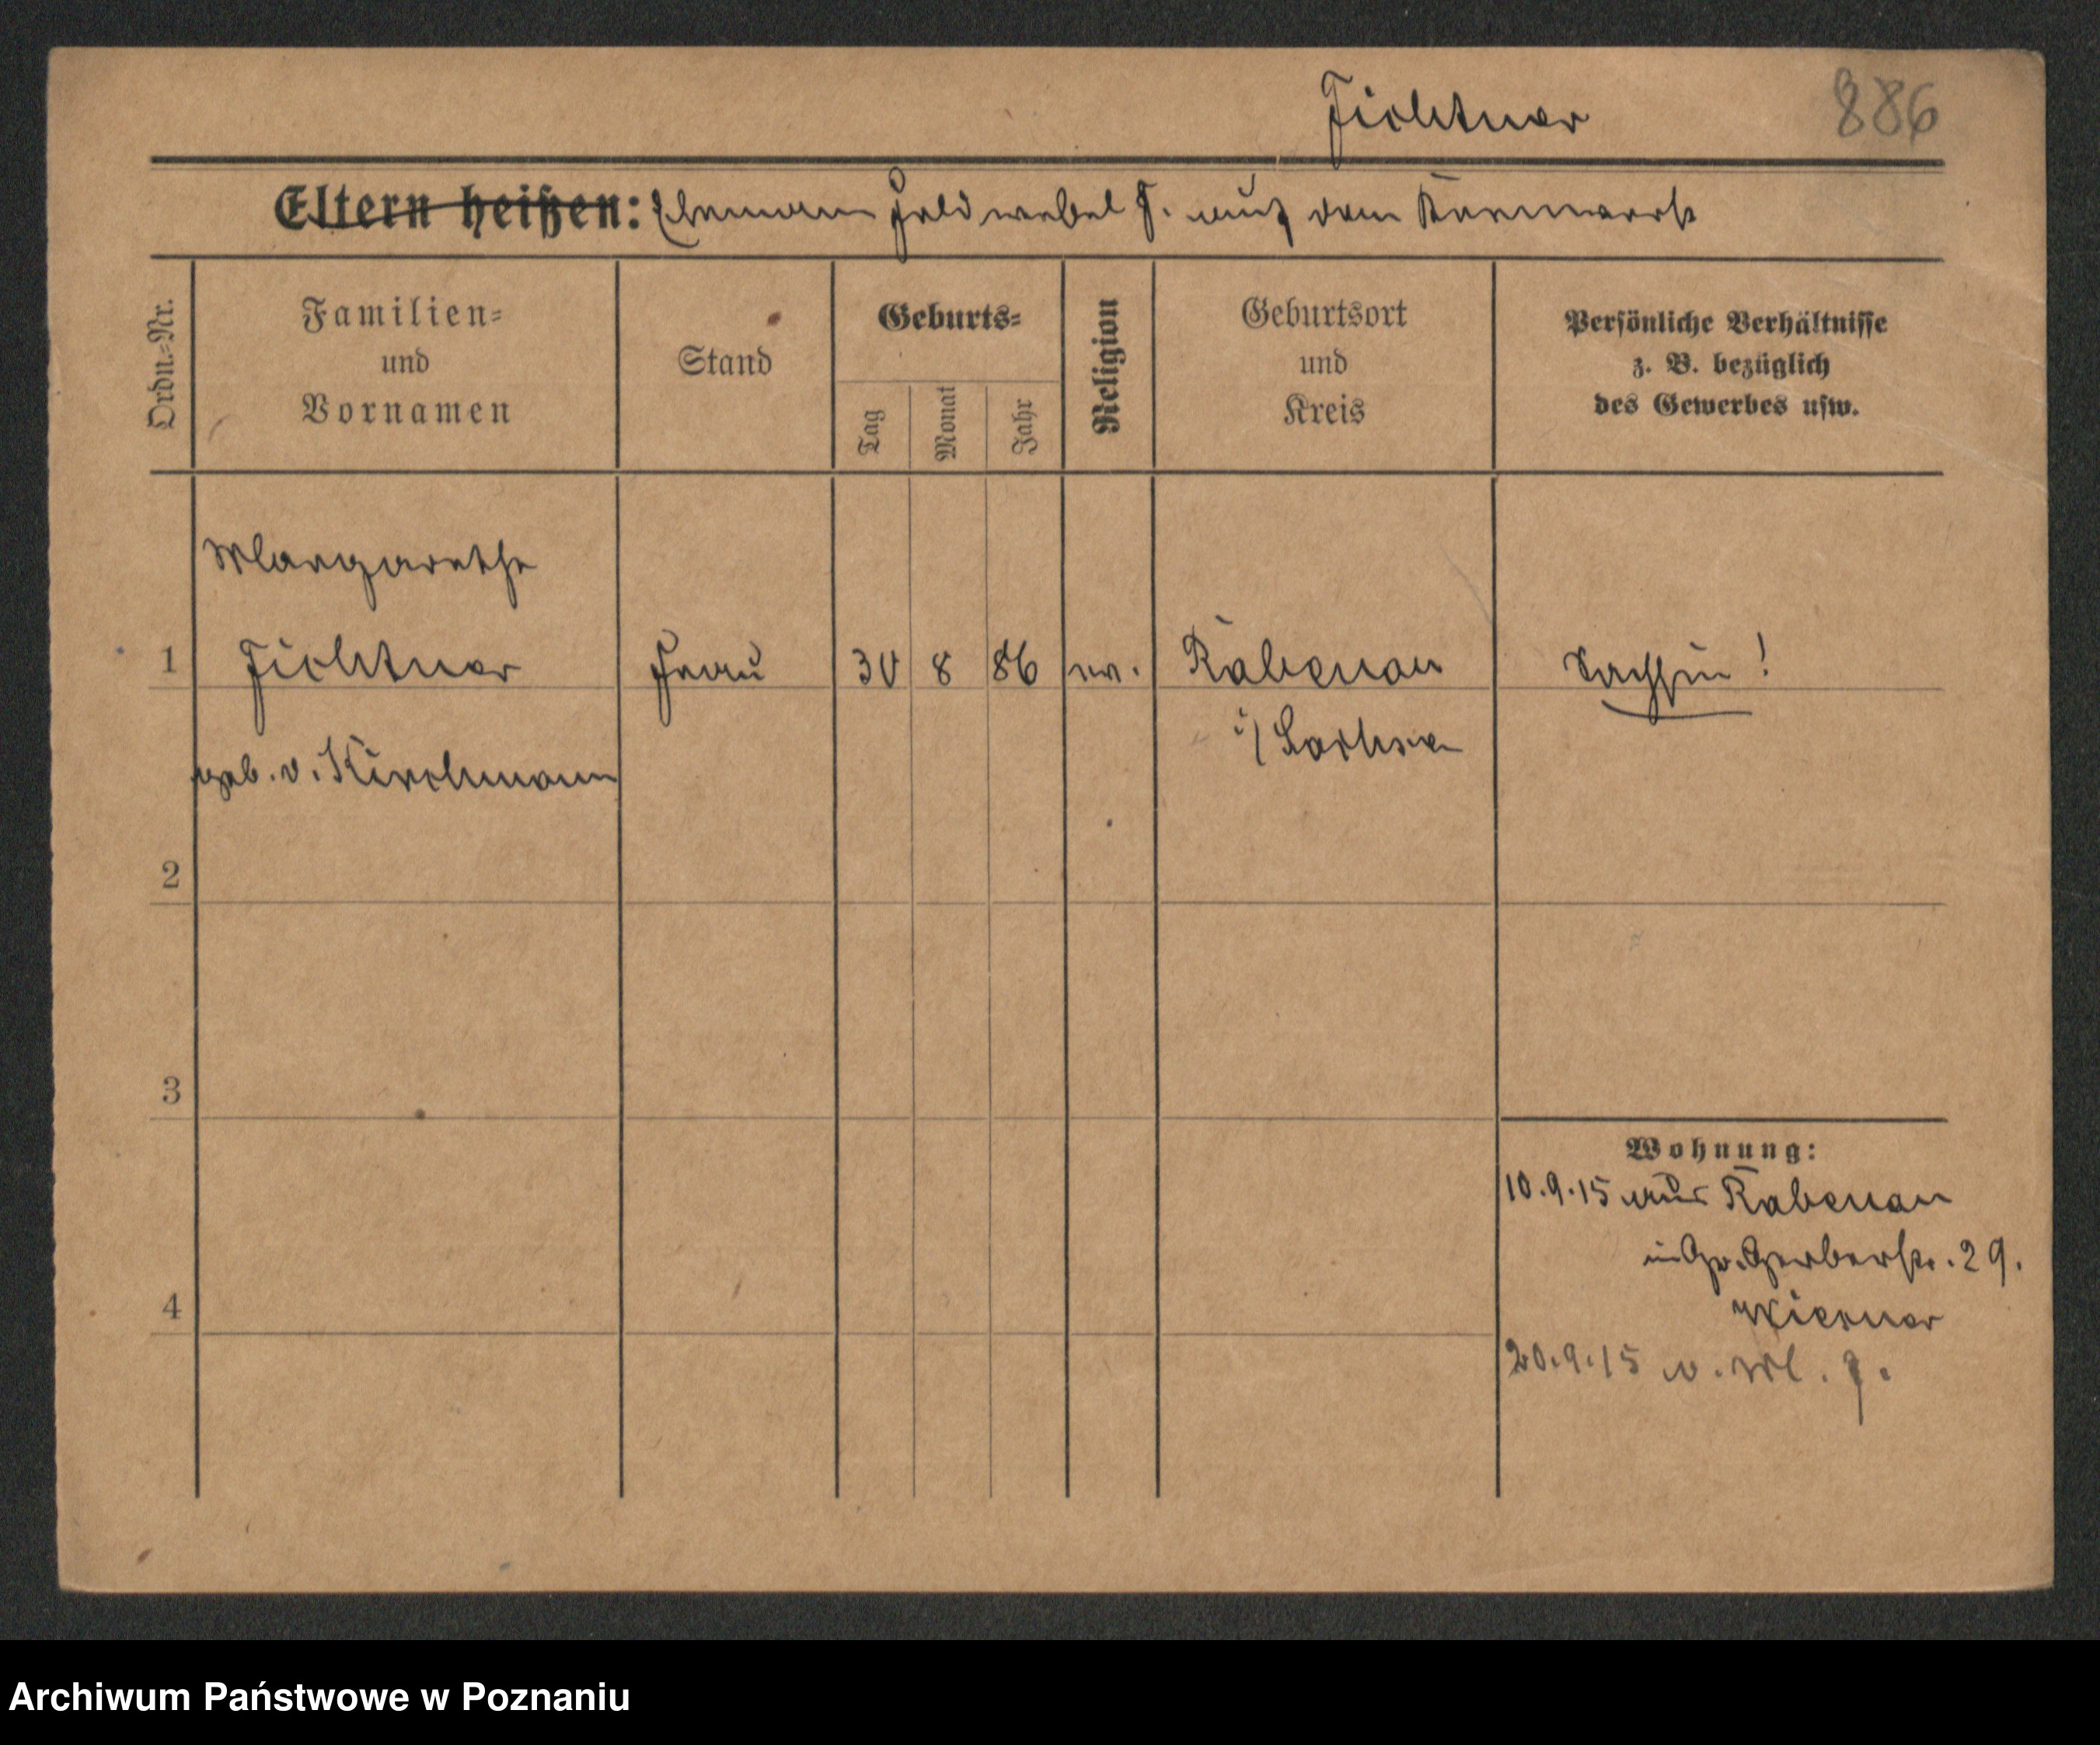 Fichtner 886
Eltern heißen: Ehemann Feldwebel F. auf dem
Ordn.-Nr.
Familien=
und
Vornamen
Stand
Geburts=
Tag
Monat
Jahr
Religion
Geburtsort
und
Kreis
Persönliche Verhältnisse
z. B. bezüglich
des Gewerbes usw.
Margarethe
1 Fichtner Frau 30 8 86 ev. Rabenau Sachsin !
geb. v. Kirchmann i/ Sachsen
2
3
Wohnung:
10.9.15 aus Rabenau
in Gr. Gerberstr. 29.
4
20.9.15 v. M. F.
Archiwum Państwowe w Poznaniu